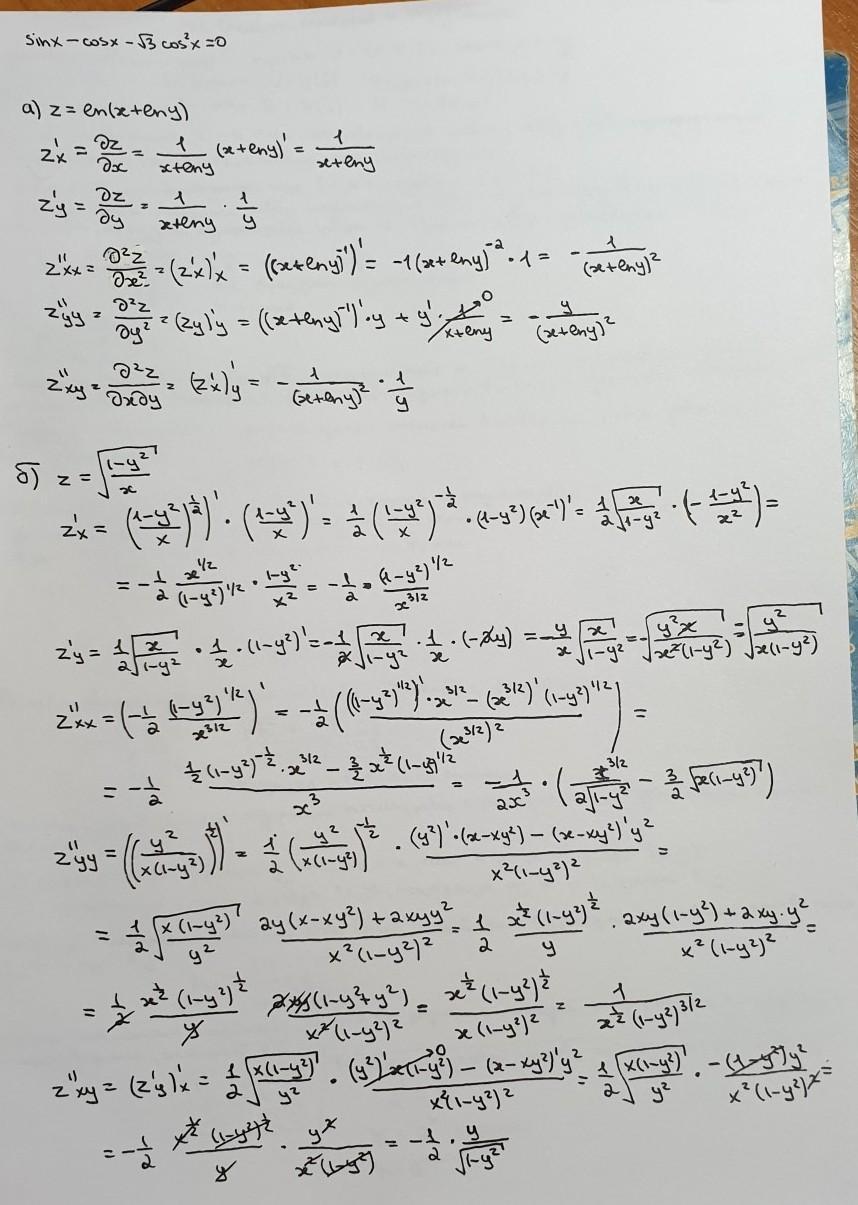 sinx – cosx – √3 cos²x = 0
а) z = ln(x+lny)
z'x = ∂z/∂x = 1/(x+lny) (x+lny)' = 1/(x+lny)
z'y = ∂z/∂y = 1/(x+lny) · 1/y
z''xx = ∂²z/∂x² = (z'x)'x = ((x+lny)⁻¹)' = -1(x+lny)⁻² · 1 = - 1/(x+lny)²
z''yy = ∂²z/∂y² = (zy)'y = ((x+lny)⁻¹)' · y + y' · 1/(x+lny) → 0 = - y/(x+lny)²
z''xy = ∂²z/∂x∂y = (z'x)'y = - 1/(x+lny)² · 1/y
б) z = √((1-y²)/x)
z'x = ((1-y²)/x)^(1/2))' · ((1-y²)/x)' = 1/2 ((1-y²)/x)^(-1/2) · (1-y²)(x⁻¹)' = 1/2 √(x/(1-y²)) · (- (1-y²)/x²) =
= - 1/2 x^(1/2)/(1-y²)^(1/2) · (1-y²)/x² = - 1/2 · (1-y²)^(1/2)/x^(3/2)
z'y = 1/2 √(x/(1-y²)) · 1/x · (1-y²)' = - 1/2 √(x/(1-y²)) · 1/x · (-2y) = - y/x √(x/(1-y²)) = -√(y²x/(x²(1-y²))) = √(y²/(x(1-y²)))
z''xx = (- 1/2 (1-y²)^(1/2)/x^(3/2))' = - 1/2 (((1-y²)^(1/2))' · x^(3/2) - (x^(3/2))' (1-y²)^(1/2))/(x^(3/2))²) =
= - 1/2 (1/2 (1-y²)^(-1/2) · x^(3/2) - 3/2 x^(1/2) (1-y)^(1/2))/x³ = - 1/(2x³) · (x^(3/2)/(2√(1-y²)) - 3/2 √(x(1-y²)))
z''yy = ((y²/(x(1-y²)))^(1/2))' = 1/2 (y²/(x(1-y²)))^(-1/2) · ((y²)' · (x-xy²) - (x-xy²)' y²)/(x²(1-y²)²) =
= 1/2 √(x(1-y²)/y²) (2y(x-xy²) + 2xyy²)/(x²(1-y²)²) = 1/2 x^(1/2) (1-y²)^(1/2)/y · (2xy(1-y²) + 2xy·y²)/(x²(1-y²)²) =
= 1/2 x^(1/2) (1-y²)^(1/2)/y 2xy(1-y²+y²)/(x²(1-y²)²) = x^(1/2) (1-y²)^(1/2)/(x(1-y²)²) = 1/(x^(1/2) (1-y²)^(3/2))
z''xy = (z'y)'x = 1/2 √(x(1-y²)/y²) · ((y²)' x(1-y²) → 0 - (x-xy²)' y²)/(x²(1-y²)²) = 1/2 √(x(1-y²)/y²) · -(1-y²)y²/(x²(1-y²)²) =
= - 1/2 x^(1/2) (1-y²)^(1/2)/y · y²/(x²(1-y²)) = - 1/2 · y/√(1-y²)